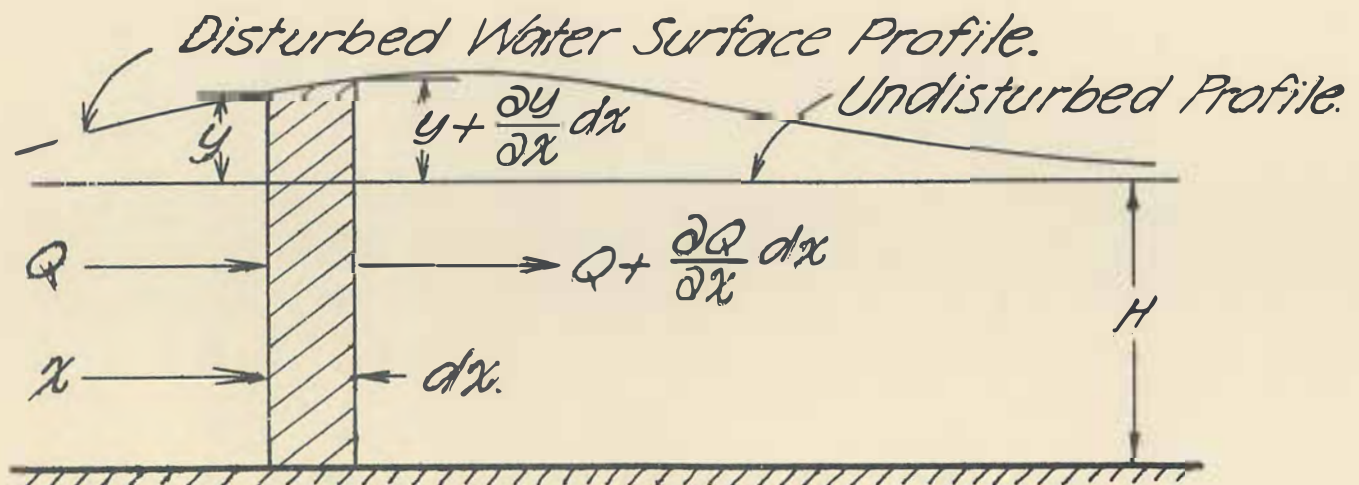 Disturbed Water Surface Profile.
Undisturbed Profile.
y
y + ∂y/∂x dx
Q
Q + ∂Q/∂x dx
H
x
dx.